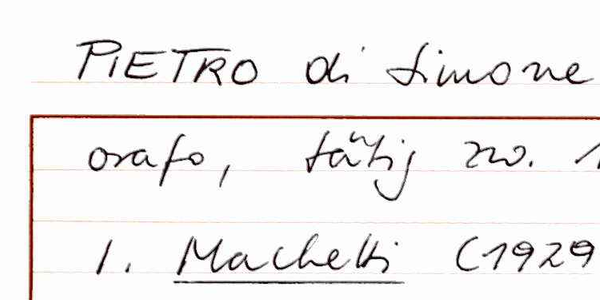 PIETRO di Simone
orafo, tätig zw. 1
1. Machetti (1929